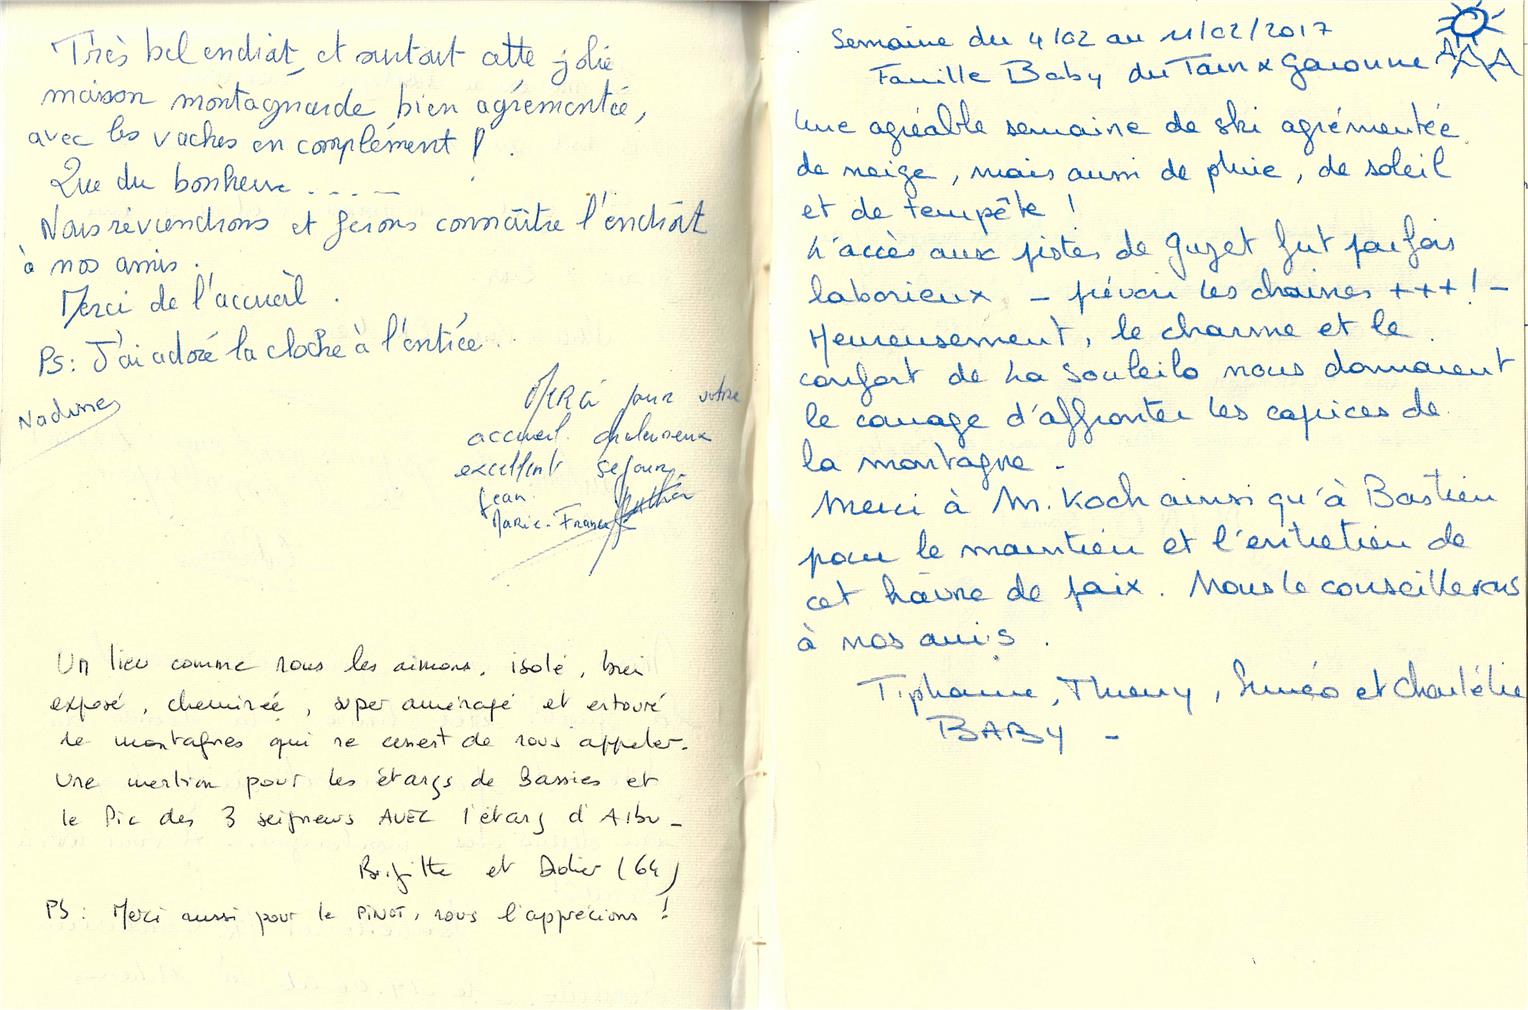 Très bel endroit, et surtout cette jolie
maison montagnarde bien agrémentée,
avec les vaches en complément !
Que du bonheur - - - -
Nous reviendrons et ferons connaître l'endroit
à nos amis.
Merci de l'accueil.
PS : J'ai adoré la cloche à l'entrée.
Nadine
Merci pour votre
accueil chaleureux
excellent séjour.
Jean
Marie-France
Un lieu comme nous les aimons, isolé, bien
exposé, cheminée, super aménagé et entouré
de montagnes qui ne cessent de nous appeler.
Une mention pour les étangs de Bassies et
le Pic des 3 seigneurs AVEC l'étang d'Albu -
Brigitte et Didier (64)
PS : Merci aussi pour le PINOT, nous l'apprécions !
Semaine du 4/02 au 11/02/2017
Famille Baby du Tarn x Garonne
Une agréable semaine de ski agrémentée
de neige, mais aussi de pluie, de soleil
et de tempête !
L'accès aux pistes de Guzet fut parfois
laborieux - prévoir les chaines +++! -
Heureusement, le charme et le
confort de La Souleilo nous donnaient
le courage d'affronter les caprices de
la montagne -
Merci à M. Koch ainsi qu'à Bastien
pour le maintien et l'entretien de
cet hâvre de paix. Nous le conseillerons
à nos amis.
Tiphaine, Thierry, et
BABY -